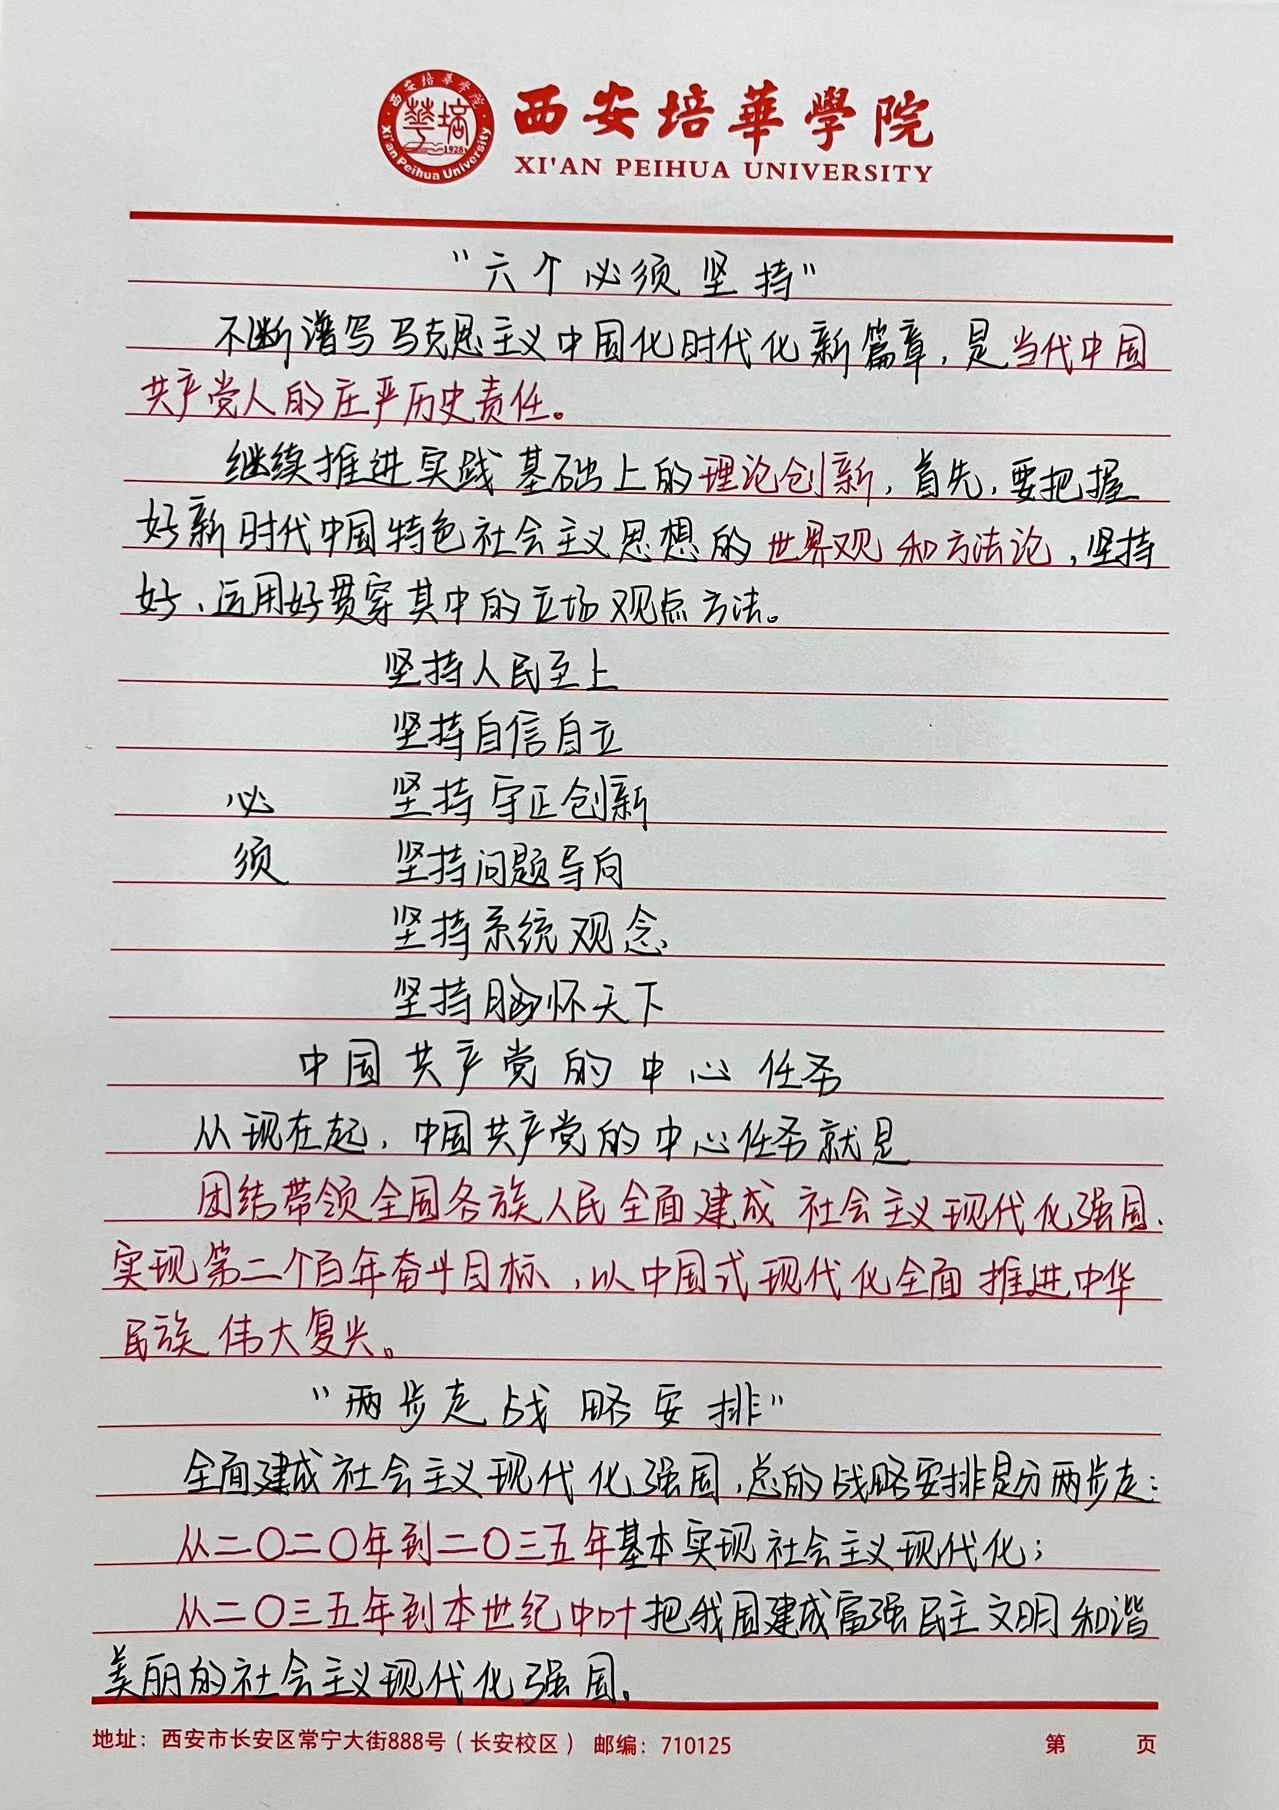 西安培華學院
XI'AN PEIHUA UNIVERSITY
西安培華学院
Xi'an Peihua University
1928
“六个必须坚持”
不断谱写马克思主义中国化时代化新篇章，是当代中国
共产党人的庄严历史责任。
继续推进实践基础上的理论创新，首先，要把握
好新时代中国特色社会主义思想的世界观和方法论，坚持
好、运用好贯穿其中的立场观点方法。
坚持人民至上
坚持自信自立
必 坚持守正创新
须 坚持问题导向
坚持系统观念
坚持胸怀天下
中国共产党的中心任务
从现在起，中国共产党的中心任务就是
团结带领全国各族人民全面建成社会主义现代化强国、
实现第二个百年奋斗目标，以中国式现代化全面推进中华
民族伟大复兴。
“两步走战略安排”
全面建成社会主义现代化强国，总的战略安排是分两步走：
从二〇二〇年到二〇三五年基本实现社会主义现代化；
从二〇三五年到本世纪中叶把我国建成富强民主文明和谐
美丽的社会主义现代化强国。
地址：西安市长安区常宁大街888号（长安校区） 邮编：710125 第 页